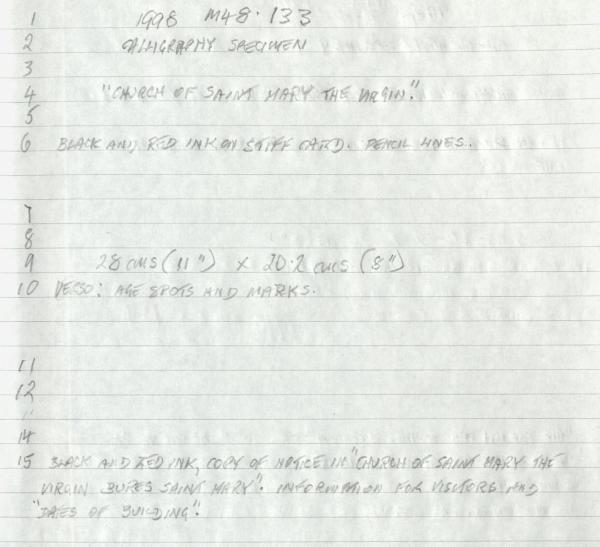 1 1998 M48.133
2 CALLIGRAPHY SPECIMEN
3
4 "CHURCH OF SAINT MARY THE VIRGIN".
5
6 BLACK AND RED INK ON STIFF CARD. PENCIL LINES.
7
8
9 28 cms (11") x 20.2 cms (8")
10 VERSO: AGE SPOTS AND MARKS.
11
12
14
15 BLACK AND RED INK, COPY OF NOTICE IN "CHURCH OF SAINT MARY THE
VIRGIN BURES SAINT MARY". INFORMATION FOR VISITORS AND
"DATES OF BUILDING".